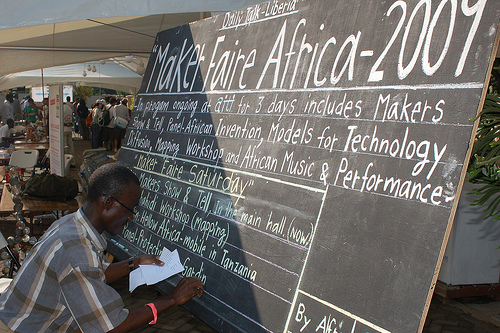 Daily Talk-Liberia
"Maker Faire Africa-2009
program ongoing at for 3 days includes Makers
Show & Tell, African Invention, Models for Technology
Mapping, Workshop and African Music & Performance
"Maker Faire Saturday"
Makers Show & Tell in the main hall (now)
Workshop (mapping)
Africa-mobile in Tanzania
By